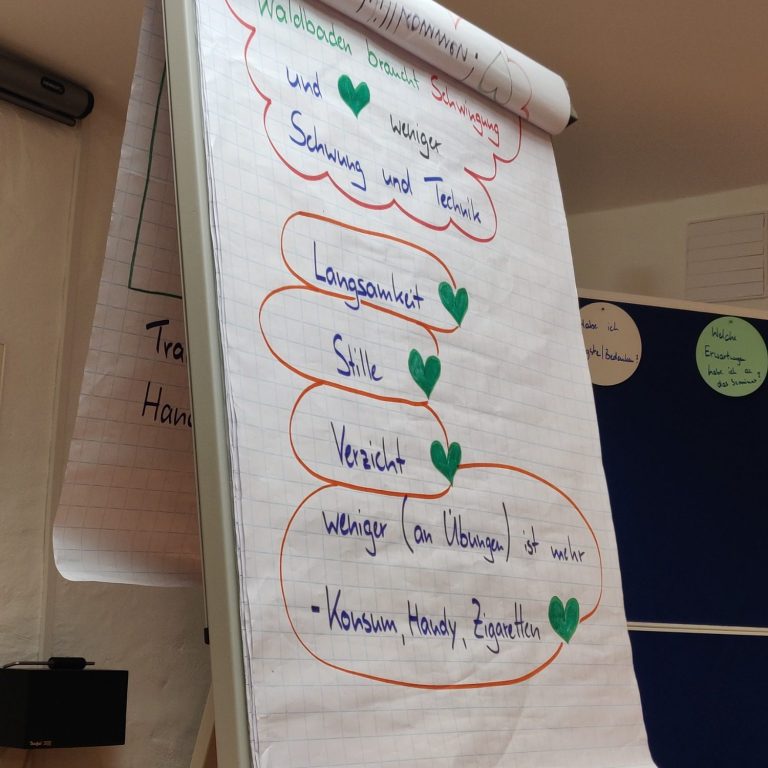 WILLKOMMEN
Waldbaden braucht Schwingung
und weniger
Schwung und Technik
Langsamkeit
Stille
Verzicht
weniger (an Übungen) ist mehr
- Konsum, Handy, Zigaretten
Tra
Han
habe ich
Welche
Erwartungen
habe ich an
das Seminar?